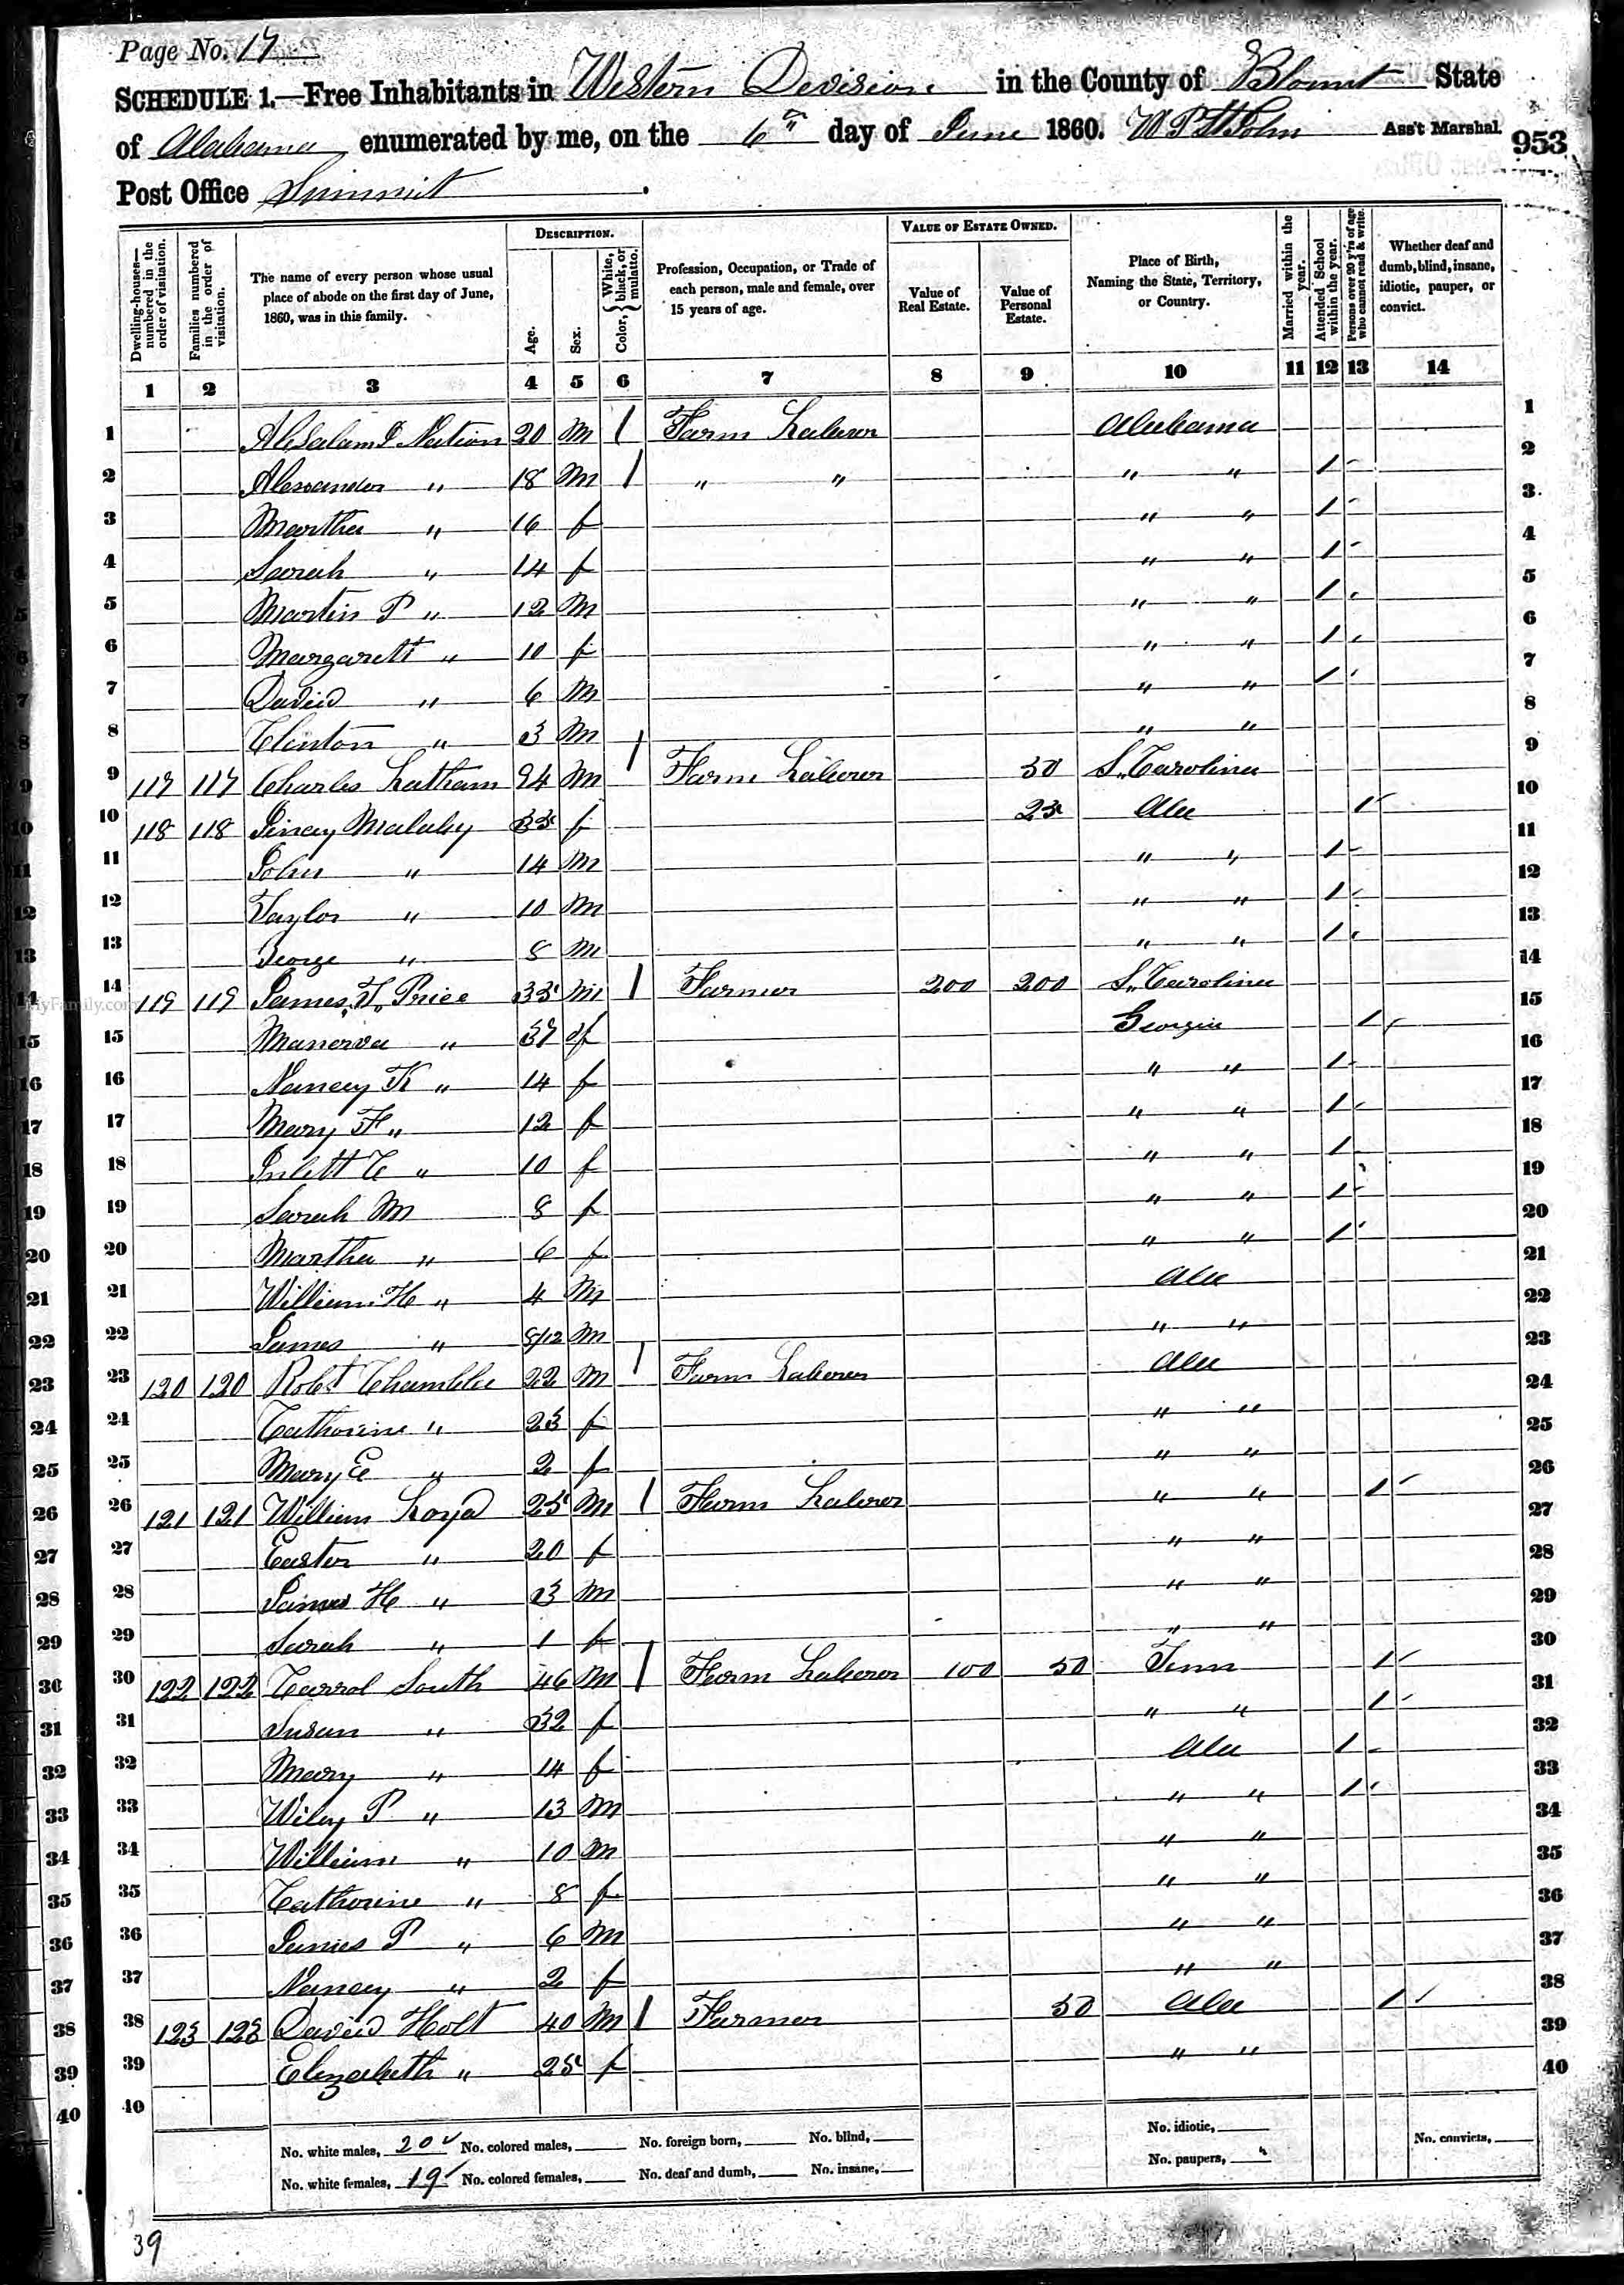 Page No. 17
SCHEDULE 1.—Free Inhabitants in Western Division in the County of Blount State
of Alabama enumerated by me, on the 6th day of June 1860. Ass't Marshal.
953
Post Office Summit
DESCRIPTION. VALUE OF ESTATE OWNED.
Dwelling-houses—numbered in the order of visitation.
Families numbered in the order of visitation.
The name of every person whose usual place of abode on the first day of June, 1860, was in this family.
Age.
Sex.
Color, { White, black, or mulatto.
Profession, Occupation, or Trade of each person, male and female, over 15 years of age.
Value of Real Estate.
Value of Personal Estate.
Place of Birth, Naming the State, Territory, or Country.
Married within the year.
Attended School within the year.
Persons over 20 y'rs of age who cannot read & write.
Whether deaf and dumb, blind, insane, idiotic, pauper, or convict.
1 2 3 4 5 6 7 8 9 10 11 12 13 14
1 Nation 20 M / Farm Laborer Alabama 1
2 Alexander " 18 M / " " " " / 2
3 Martha " 16 f " " / 3
4 Sarah " 14 f " " / 4
5 Martin P " 12 M " " / 5
6 Margarett " 10 f " " / 6
7 David " 6 M " " / 7
8 Clinton " 3 M " " 8
9 117 117 Charles Latham 24 M / Farm Laborer 50 S. Carolina 9
10 118 118 33 f 25 Ala / 10
11 John " 14 M " " / 11
12 Taylor " 10 M " " / 12
13 George " 8 M " " / 13
14 119 119 James T. Price 35 M / Farmer 200 200 S. Carolina 14
15 Manerva " 37 f Georgia / 15
16 Nancy K " 14 f " " / 16
17 Mary F " 12 f " " / 17
18 10 f " " / 18
19 Sarah M 8 f " " / 19
20 Martha " 6 f " " / 20
21 William H " 4 M Ala 21
22 James " 8/12 M " " 22
23 120 120 Robt Chamblee 22 M / Farm Laborer Ala 23
24 Cathorine " 23 f " " 24
25 Mary E " 2 f " " 25
26 121 121 William Loyd 25 M / Farm Laborer " " / 26
27 Easter " 20 f " " 27
28 James H " 3 M " " 28
29 Sarah " 1 f " " 29
30 122 122 Carrol South 46 M / Farm Laborer 100 50 Tenn / 30
31 Susan " 32 f " " / 31
32 Mary " 14 f Ala / 32
33 Wiley P " 13 M " " / 33
34 William " 10 M " " 34
35 Cathorine " 8 f " " 35
36 James P " 6 M " " 36
37 Nancy " 2 f " " 37
38 123 123 David Holt 40 M / Farmer 50 Ala / 38
39 Elizabeth " 25 f " " 39
40 40
No. white males, 20 No. colored males, No. foreign born, No. blind, No. idiotic, No. convicts,
No. white females, 19 No. colored females, No. deaf and dumb, No. insane, No. paupers,
39
MyFamily.com